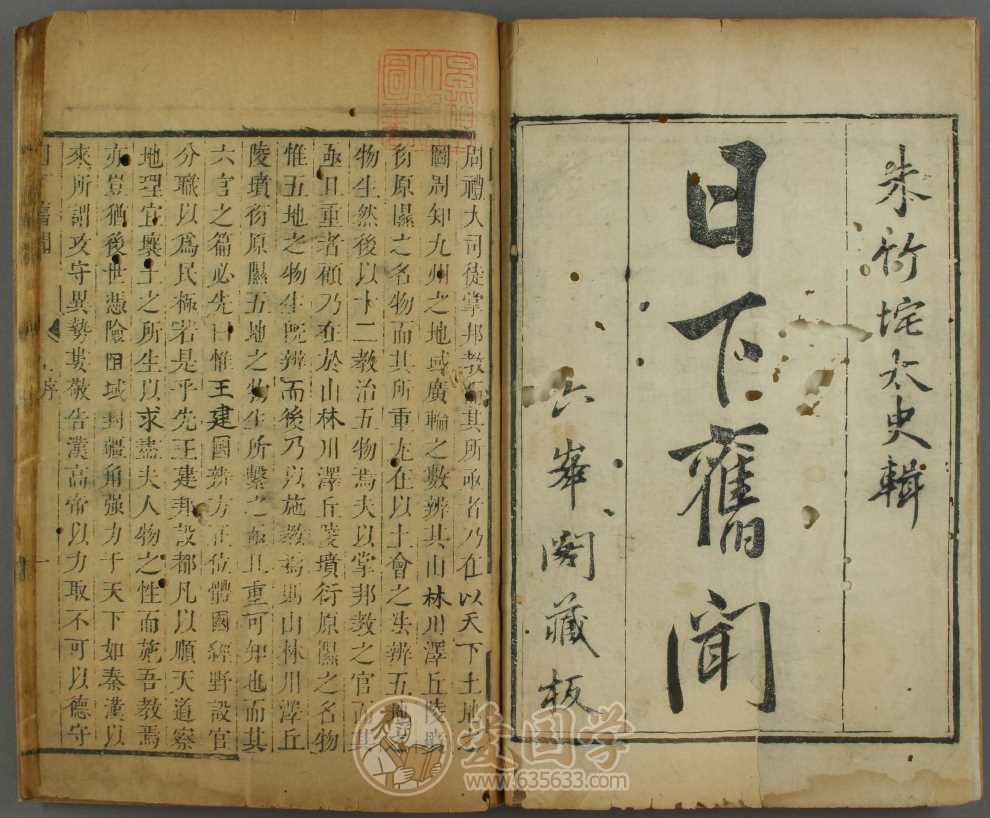 朱竹垞太史輯
日下舊聞
六峯閣藏板
周禮大司徒掌邦教而其所亟者乃在以天下土地之
圖周知九州之地域廣輪之數辨其山林川澤丘陵墳
衍原隰之名物而其所重尤在以土會之法辨五地之
物生然後以十二教治五物焉夫以掌邦教之官而其
亟且重者顧乃在於山林川澤丘陵墳衍原隰之名物
惟五地之物生旣辨而後乃以施教焉則山林川澤丘
陵墳衍原隰五地之物生所繫之亟且重可知也而其
六官之篇必先曰惟王建國辨方正位體國經野設官
分職以爲民極若是乎先王建邦設都凡以順天道察
地理宜壤土之所生以求盡夫人物之性而施吾教焉
亦豈猶後世憑險阻域封疆角强力于天下如秦漢以
來所謂攻守異勢婁敬告漢高帝以力取不可以德守
日下舊聞
序
一
爱国学
www.635633.com